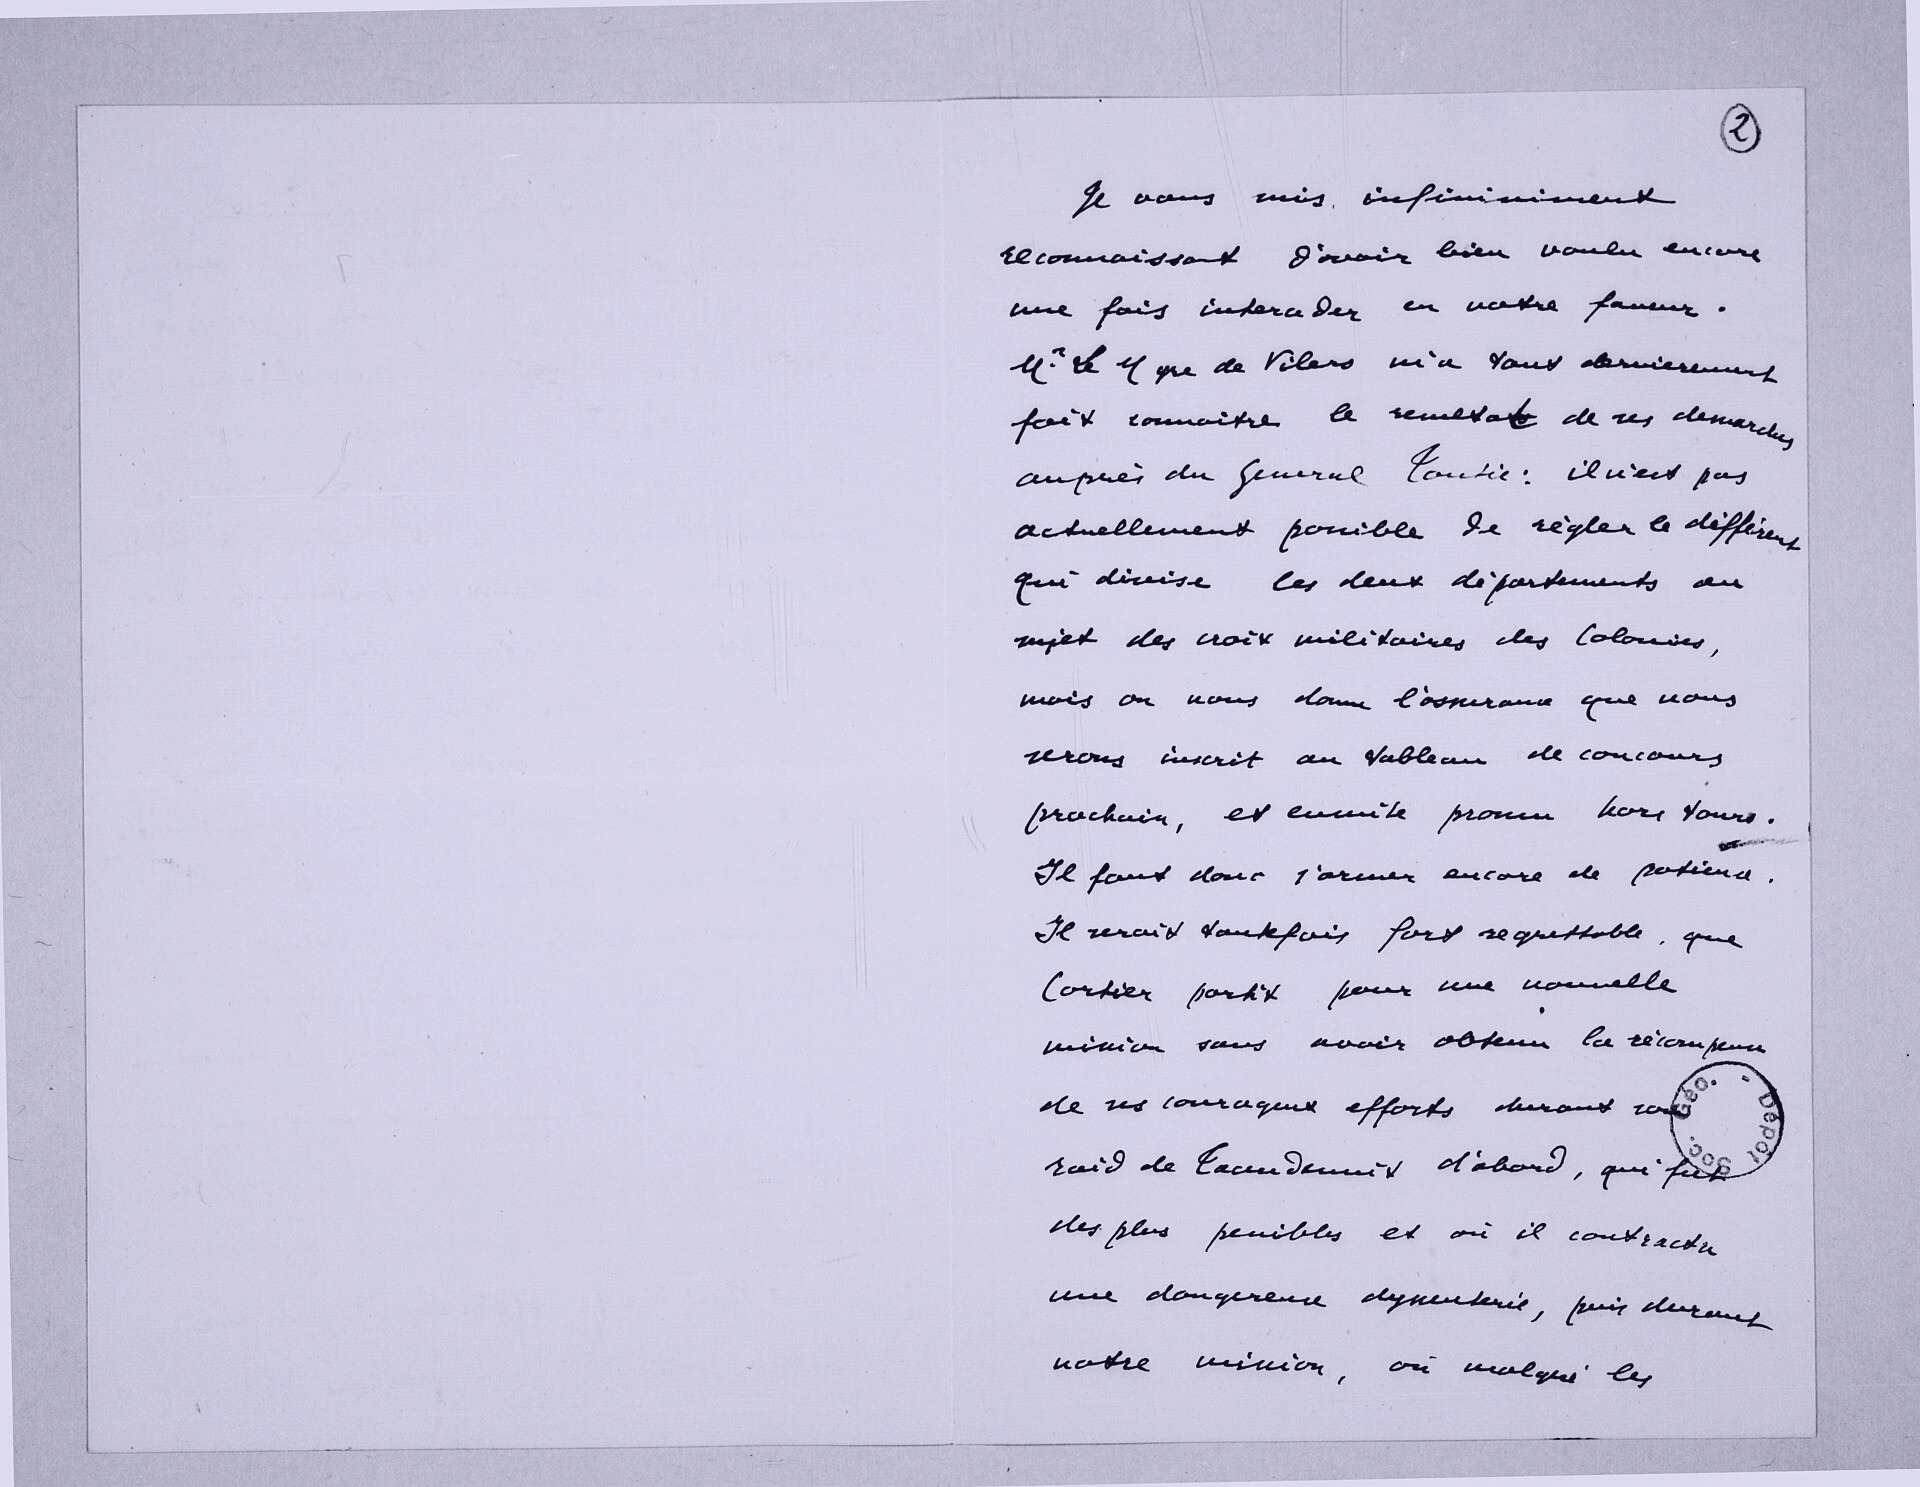 2
Je vous suis infininiment
reconnaissant d'avoir bien voulu encore
une fois interceder en notre faveur.
Mr Le Myre de Vilers m'a tout dernierement
fait connaitre le resultat de ses demarches
auprès du General Toutée : il n'est pas
actuellement possible de règler le différent
qui divise les deux départements au
sujet des croix militaires des Colonies,
mais on nous donne l'assurance que nous
serons inscrit au tableau de concours
prochain, et ensuite promu hors tours.
Il faut donc s'armer encore de patience.
Il serait toutefois fort regrettable, que
Cortier partit pour une nouvelle
mission sans avoir obtenu la récompense
de ses courageux efforts durant son
raid de Taoudennit d'abord, qui fut
des plus penibles et où il contracta
une dangereuse dyssenterie, puis durant
notre mission, où malgré les
Soc. Géo. - Dépôt